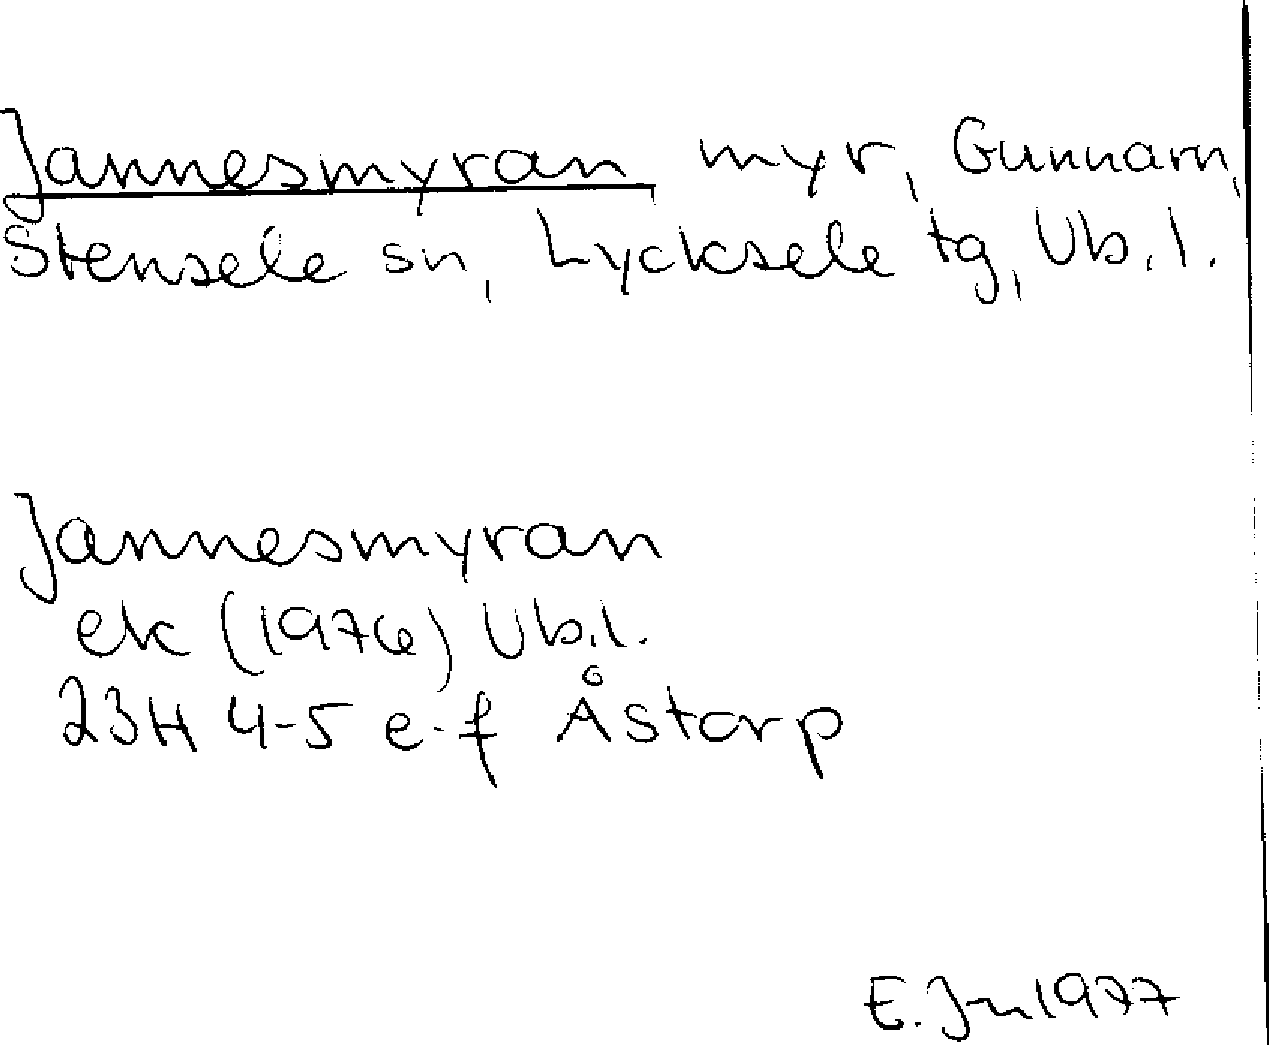 Jannesmyran myr, Gunnarn,
Stensele sn, Lycksele tg, Vb.l.
Jannesmyran
ek (1976) Vb.l.
23H 4-5 e-f Åstorp
E. Jn 1977